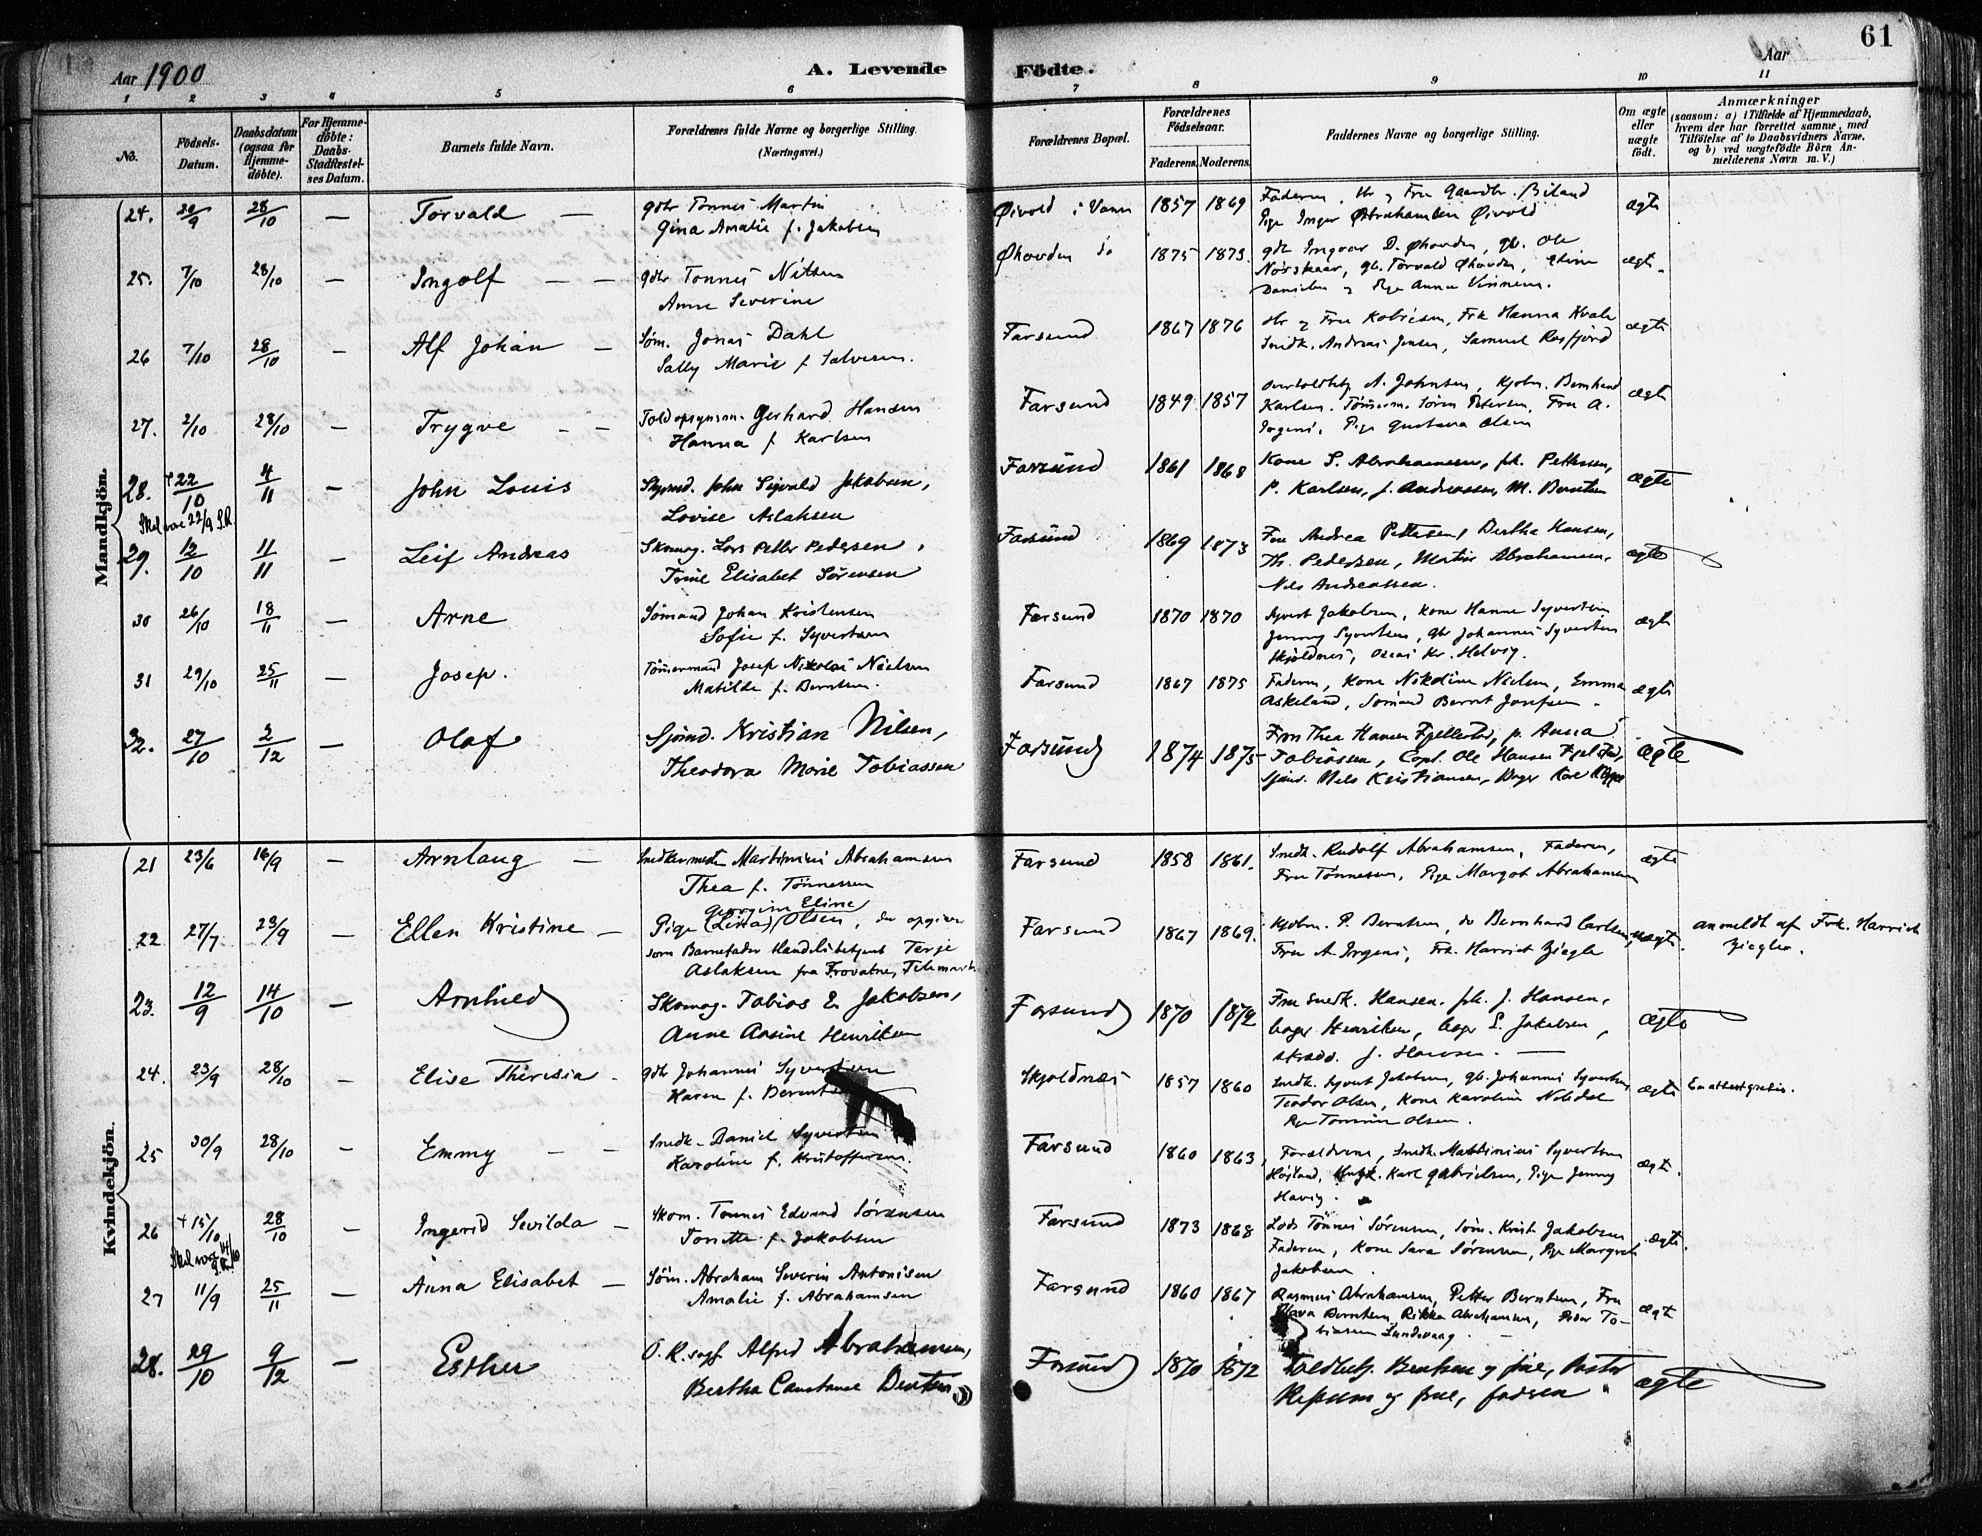 61
Aar 1900
A. Levende
Födte.
Aar
1 2 3 4 5 6 7 8 9 10 11
No.
Födsels-Datum.
Daabsdatum (ogsaa for Hjemmedöbte).
For Hjemmedöbte: Daabs-Stadfæstelses Datum.
Barnets fulde Navn.
Forældrenes fulde Navne og borgerlige Stilling.
(Næringsvei.)
Forældrenes Bopæl.
Forældrenes Födselsaar.
Faderens. Moderens.
Faddernes Navne og borgerlige Stilling.
Om ægte eller uægte födt.
Anmærkninger
(saasom: a) i Tilfælde af Hjemmedaab, hvem der har forrettet samme, med Tilföielse af to Daabsvidners Navne, og b) ved uægtefödte Börn Anmelderens Navn m. V.)
Mandkjön.
24. 20/9 28/10 — Torvald — gbr Tonnes Martin Øivold i Vanse 1857 1869 Faderen, Hr og Fru Gaardbr. Biland ægte
Gina Amalie f. Jakobsen Pige Inger Abrahamsen Øivold
25. 7/10 28/10 — Ingolf — — gbr Tonnes Nilsen Øhovden do 1875 1873. gbr Ingvar D. Øhovden, gb. Ole ægte.
Anne Severine Nørskaar, gb. Torvald Øhovden,
Danielsen og Pige Anna Vinnem.
26 7/10 28/10 — Alf Johan — Søm. Jonas Dahl Farsund 1867 1876 Hr og Fru Kobrosen, Frk Hanna Kvale ægte
Sally Marie f Salvesen. Snedk. Andreas Jensen, Samuel Rosfjord
27. 2/10 28/10 — Trygve — — Toldopsynsm. Gerhard Hansen Farsund 1849 1857 A. Johnsen, Kjøbm. Bernhard ægte
Hanna f Karlsen Karlsen. Tømerm. Søren Petersen, Fru A.
Jorgens, Pige Gustava Olsen
28. +22/10 4/11 — John Louis Sjømd. John Sigvald Jakobsen, Farsund 1861 1868 Kone S. Abrahamsen, pk. Pettersen, ægte
Skal være 22/9 S.R. Lovise Aslaksen P. Karlsen, J. Andreassen, M. Berntsen
29. 12/10 11/11 — Leif Andreas Skomag. Lars Petter Pedersen, Farsund 1869 1873 Fru Andrea Pettersen, Bertha Hansen, ægte
Trine Elisabet Sørensen Th. Pedersen, Martin Abrahamsen,
Nils Andreassen.
30 26/10 18/11 — Arne Sømand Johan Kristensen Farsund 1870 1870 Syvert Jakobsen, Kone Hanne Syvertsen ægte
Sofie f. Syvertsen Jenny Syvertsen, gbr Johannes Syvertsen
Skjoldnes, Oscar Kr. Helvig.
31 29/10 25/11 — Josep. Tømermand Josep Nikolai Nielsen Farsund 1867 1875 Faderen, Kone Nikoline Nielsen, Emma ægte
Matilde f. Berntsen. Askeland, Sømand Bernt Josefsen.
32. 27/10 2/12 — Olaf Sjømd. Kristian Nilsen, Farsund 1874 1875 Frøn Thea Hansen Fjellestad, p. Anna ægte
Theodora Marie Tobiassen Tobiassen, Capt. Ole Hansen Fjelstad,
Sjømd. Nils Kristiansen, Karl
Kvindekjön.
21 23/6 16/9 — Arnlaug — Snedkermester Martinius Abrahamsen Farsund 1858 1861. Snedk. Rudolf Abrahamsen, Faderen, ægte
Thea f. Tönnessen Fru Tønnesen, Pige Margot Abrahamsen
Georgine Eline
22 27/7 23/9 — Ellen Kristine — Pige (Lina) Olsen, der opgiver Farsund 1867 1869. Kjøbm. P. Berntsen, do Bernhard Carlsen, uægte. anmeldt af Frk. Harriet
som Barnefader Handelsbetjent Terje Fru A. Jorgens, Frk. Harriet Ziegler Ziegler.
Aslaksen fra Frovatne, Telemarken
23. 12/9 14/10 — Arnhild Skomag. Tobias E. Jakobsen, Farsund 1870 1872 Fru Snedk. Hansen. pk. J. Hansen, ægte
Anne Aasine Henriksen bager Henriksen, bager S. Jakobsen,
skradd. J. Hansen. —
24. 23/9 28/10 — Elise Theresia. gbr Johannes Syvertsen Skjoldnæs 1857 1860 Snedk. Syvert Jakobsen, gb. Johannes Syvertsen ægte En attest gratis.
Karen f. Berent Teodor Olsen, Kone Karoline
Pige Tomine Olsen.
25 30/9 28/10 — Emmy — — Snedk. Daniel Syvertsen Farsund 1860 1863, Forældrene, Snedk. Mathinius Syvertsen ægte.
Karoline f. Kristoffersen. Høiland, Karl Gabrielsen, Pige Jenny
Havig.
26 +15/10 28/10 — Ingerid Sevilda — Skom. Tonnes Edvard Sørensen Farsund 1873 1868 Lods Tönnes Sørensen, Søm. Krist. Jakobsen ægte.
Skal være 14/10 S.R. Tonette f. Jakobsen Faderen, Kone Sara Sørensen, Pige Margrete
Jakobsen.
27 11/9 25/11 — Anna Elisabet — Søm. Abraham Severin Antonisen Farsund 1860 1867 Rasmus Abrahamsen, Petter Berntsen, Fru ægte
Amalie f. Abrahamsen Berntsen, Rikka Abrahamsen, Peder To-
biassen Lundevaag.
28. 29/10 9/12 — Esther O.R.sagf. Alfred Abrahamsen, Farsund 1870 1872 Toldbetj. Berntsen og frue, Pastor ægte
Bertha Constance Berntsen og frue, faderen